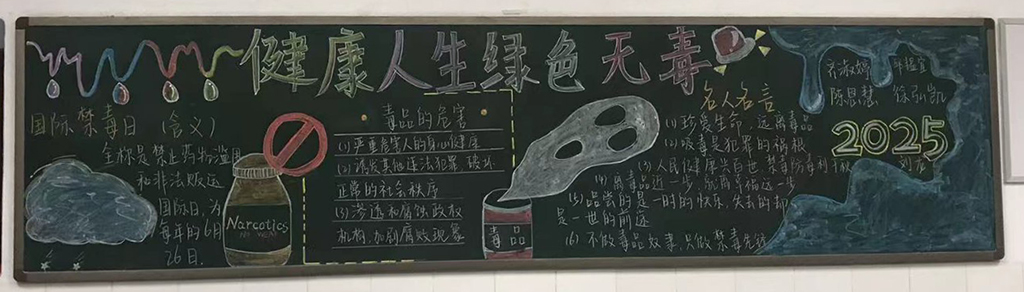 健康人生绿色无毒
国际禁毒日（含义）
全称是禁止药物滥用
和非法贩运
国际日,为
每年的6月
26日.
Narcotics
毒品的危害
(1)严重危害人的身心健康
(2)诱发其他违法犯罪 破坏
正常的社会秩序
(3)渗透和腐蚀政权
机构,加剧腐败现象
毒品
名人名言
(1)珍爱生命 远离毒品
(2)吸毒是犯罪的祸根
(3)人民健康兴百世 禁毒防毒利千秋
(4)离毒品近一步 就离幸福远一步
(5)品尝的是一时的快乐,失去的却
是一世的前途
(6)不做毒品奴隶,只做禁毒先锋
陈思慧
2025